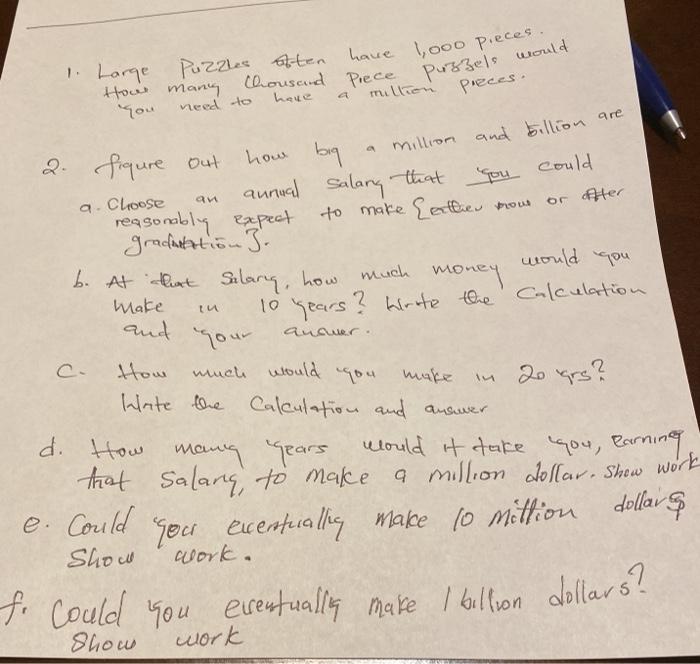 1. Large Puzzles often have 1,000 pieces.
How many thousand Piece Puzzels would
you need to have a million pieces.
2. figure out how big a million and billion are
a. Choose an annual Salary that you could
reasonably expect to make {either now or after
graduation}.
b. At that Salary, how much money would you
make in 10 years? Write the Calculation
and your answer.
C. How much would you make in 20 yrs?
Write the Calculation and answer
d. How many years would it take you, earning
that Salary, to make a million dollar. Show work
e. Could you eventually make 10 million dollars
Show work.
f. Could you eventually make 1 billion dollars?
Show work